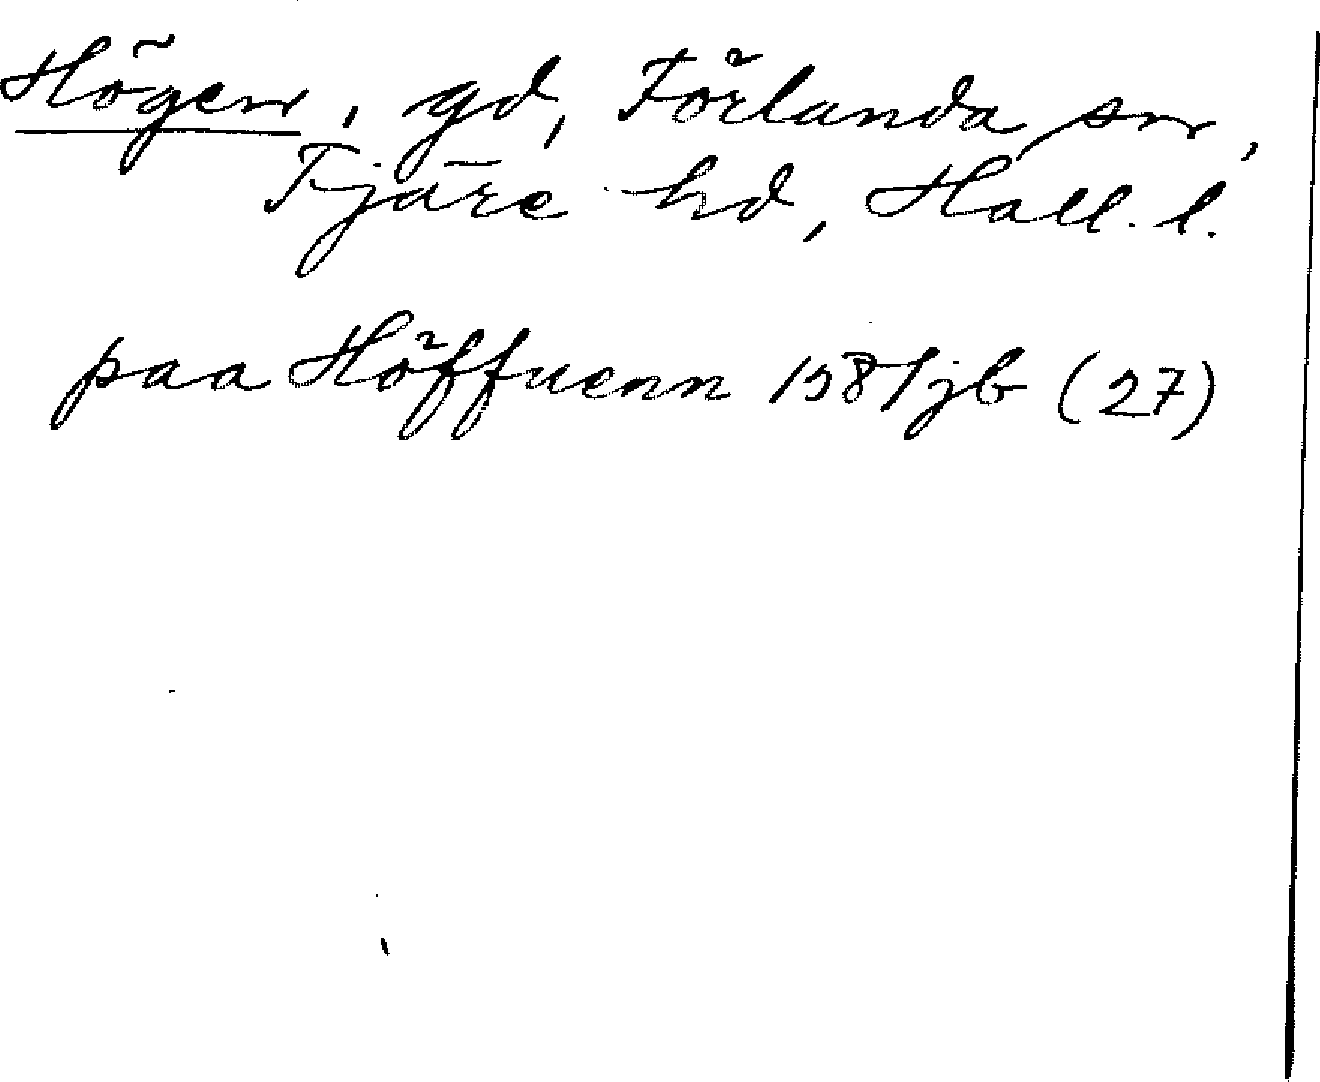 Högen, gd, Förlanda sn,
Fjäre hd, Hall. l.
paa Höffuenn 1581 jb (27)